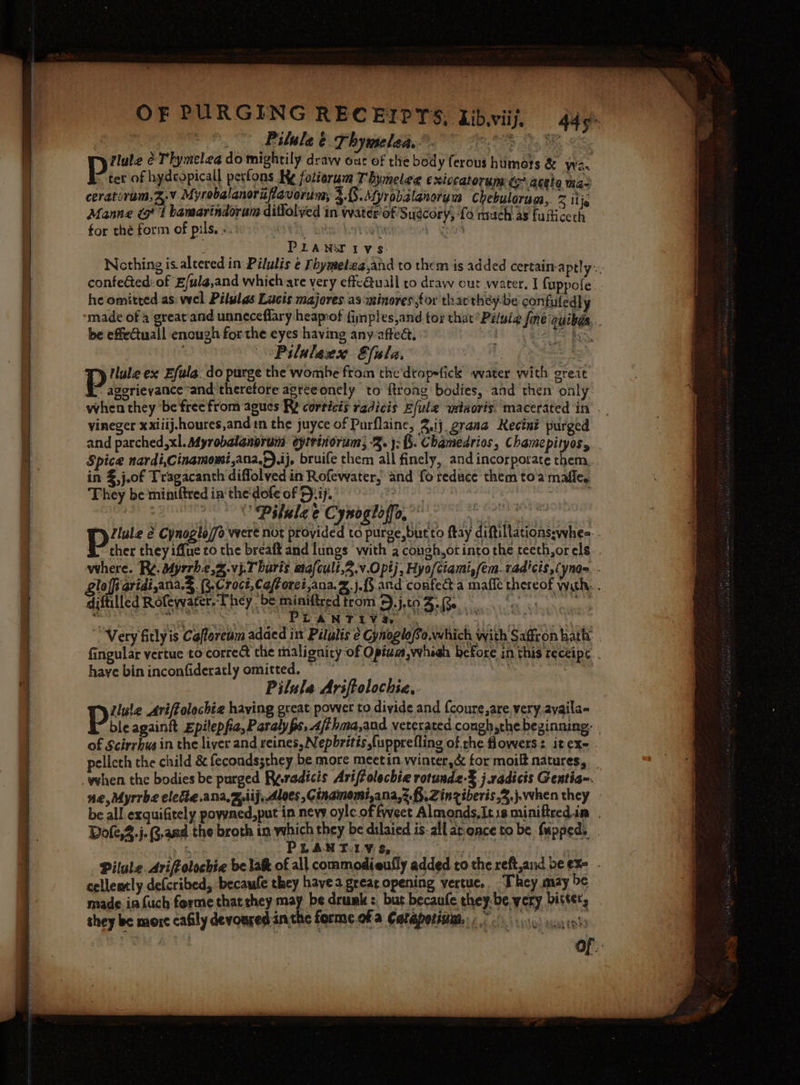 OF PURGING RECEIPTS, Lib.viij. 449
Pilulæ è Thymelæa.
Pilulæ è Thymelæa do mightily draw out of the body ſerous humors & wa-
ter of hydropicall perſons. ℞ foliorum Thymelææ exiccatorum & aceto ma-
ceratorum,ʒ.v Myrobalanorū flavorum, ʒ.ß.Myrobalanorum Chebulorum, ʒ iije
Mannæ & tamarindorum diſſolved in water of Succory, ſo much as ſufficeth
for the form of pils.
PLANTIVS
Nothing is altered in Pilulis è Thymelæa,and to them is added certain aptly
confected of Eſula,and which are very effectuall to draw out water. I ſuppoſe
he omitted as wel Pilulas Lucis majores as minores,for that they be confuſedly
made of a great and unneceſſary heap of ſimples,and for that Pilulæ ſine quibus
be effectuall enough for the eyes having any affect.
Pilulæ ex Eſula.
Pilulæ ex Eſula do purge the wombe from the dropſick water with great
aggrievance and therefore agree onely to ſtrong bodies, and then only
when they be free from agues ℞ corticis radicis Eſulæ minoris macerated in
vineger xxiiij.houres,and in the juyce of Purſlaine, ʒ.ij grana Recini purged
and parched,xl.Myrobalanorum cytrinorum, ʒ. j. ß. Chamedrios, Chamepityos,
Spicæ nardi,Cinamomi,ana.℈.ij. bruiſe them all finely, and incorporate them
in ℥.j.of Tragacanth diſſolved in Roſewater, and ſo reduce them to a maſſe.
They be miniſtred in the doſe of ℈.ij.
Pilulæ è Cynogloſſo.
Pilulæ è Cynogloſſo were not provided to purge,but to ſtay diſtillations,whe-
ther they iſſue to the breaſt and lungs with a cough,or into the teeth,or els
where. ℞. Myrrhæ,ʒ.vj.Thuris maſculi,ʒ.v.Opij, Hyoſciami,ſem. radicis,Cyno-
gloſſi aridi,ana.ʒ. ß.Croci,Caſtorei,ana.ʒ.j.ß and confect a maſſe thereof with
diſtilled Roſewater. They be miniſtred from ℈.j.to ʒ.ße
PLANTIVS
Very fitly is Caſtoreum added in Pilulis è Cynogloſſo,which with Saffron hath
ſingular vertue to correct the malignity of Opium,which before in this receipt
have bin inconſideratly omitted.
Pilulæ Ariſtolochiæ.
Pilulæ Ariſtolochiæ having great power to divide and ſcoure,are very availa-
ble againſt Epilepſia, Paralyſis, Aſthma,and veterated cough,the beginning
of Scirrhus in the liver and reines, Nephritis,ſuppreſſing of the flowers : it ex-
pelleth the child & ſeconds;they be more meet in winter,& for moiſt natures,
when the bodies be purged ℞.radicis Ariſtolochiæ rotundæ ʒ j.radicis Gentia-
næ,Myrrhæ electæ.ana.ʒ.iij.Aloes,Cinamomi,ana,ʒ.ß.Zinziberis,ʒ.j.when they
be all exquiſitely powned,put in new oyle of ſweet Almonds.It is miniſtred in
Doſe,ʒ.j.ß.and the broth in which they be dilaied is all at once to be ſupped.
PLANTIVS,
Pilulæ Ariſtolochiæ be laſt of all commodiouſly added to the reſt,and be ex-
cellently deſcribed, becauſe they have a great opening vertue. They may be
made in ſuch forme that they may be drunk : but becauſe they be very bitter,
they be more eaſily devoured in the forme of a Catapotium.
Of